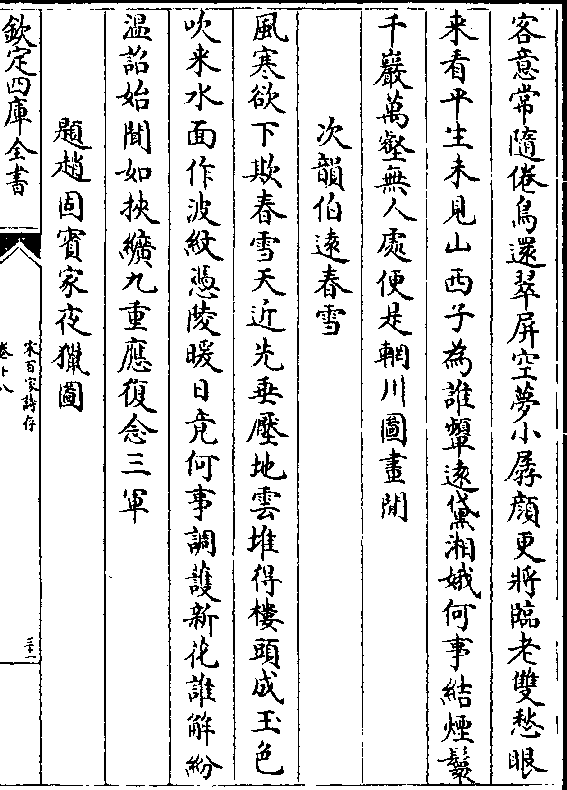 客意常隨倦鳥還翠屏空夢小孱顔更將臨老雙愁眼
来看平生未見山西子為誰顰遠黛湘娥何事結煙鬟
千巖萬壑無人處便是輞川圖畫閒
次韻伯遠春雪
風寒欲下欺春雪天近先垂壓地雲堆得樓頭成玉色
吹来水面作波紋憑陵暖日竟何事調護新花誰解紛
温詔始聞如挾纊九重應復念三軍
題趙固賓家夜獵圖
欽定四庫全書
宋百家詩存
卷十八
三十二